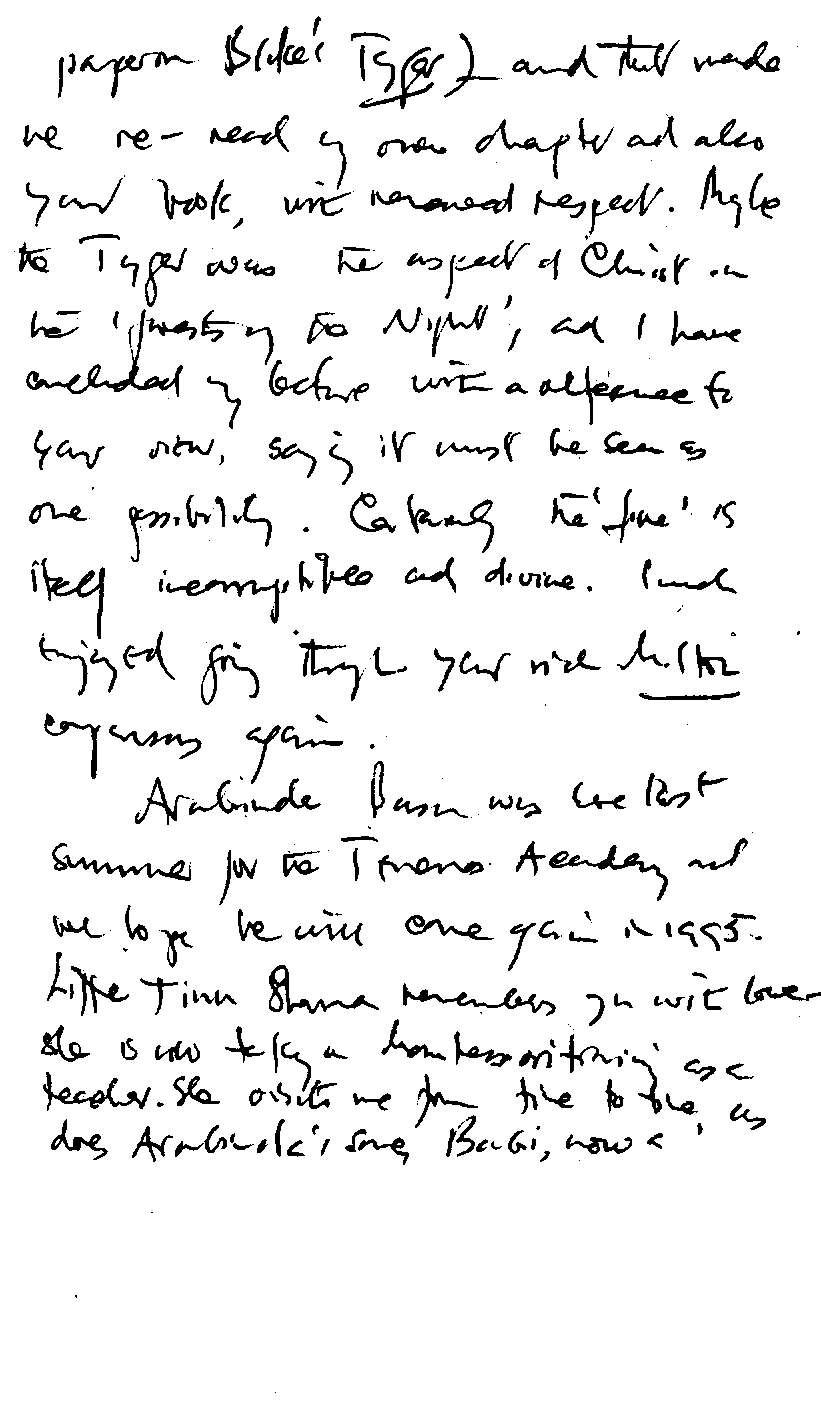 paper on Blake's Tyger) and that made
me re-read my own chapter and also
your book, with renewed respect. Maybe
the Tyger was the aspect of Christ in
the 'forests of the Night', and I have
concluded my lecture with a reference to
your view, saying it must be seen as
one possibility. Certainly the 'fire' is
itself incorruptible and divine. I much
enjoyed going through your rich Milton
comparisons again.
Arabinda Basu was here last
summer for the Temenos Academy and
we hope he will come again in 1995.
Little Tinu Sharma remembers you with love -
she is now taking a Montessori training as a
teacher. She visits me from time to time, as
does Arabinda's son, Babi, now a